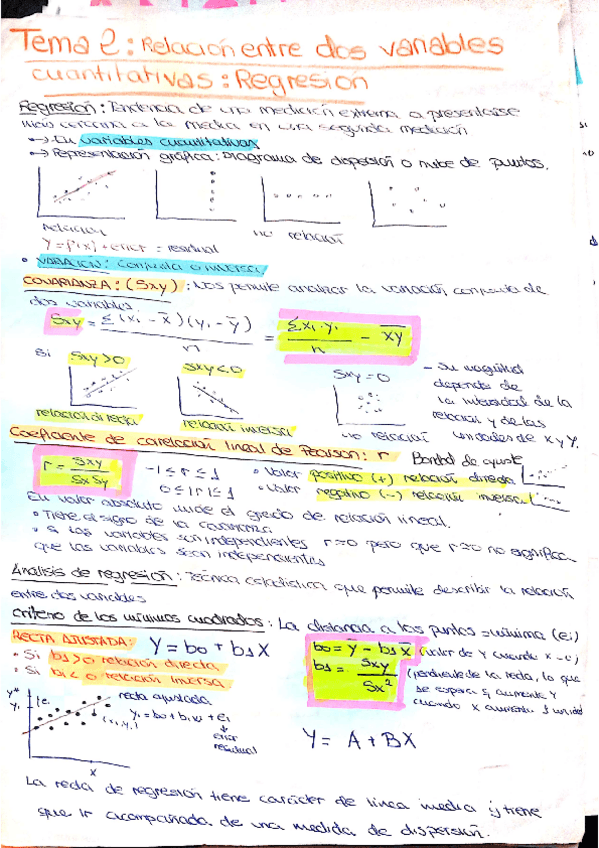 Tema 2: Relación entre dos variables
cuantitativas: Regresión
Regresión: Tendencia de una medición extrema a presentarse
más cercana a la media en una segunda medición
→ En variables cuantitativas
→ Representación gráfica: Diagrama de dispersión o nube de puntos.
relación
no relación
Y = f(x) + error = residual
• Variación: Conjunta o inversa
COVARIANZA: (Sxy): Nos permite analizar la variación conjunta de
dos variables
Sxy = Σ(xi - x̄)(yi - ȳ) / n = Σxi·yi / n - x̄ȳ
Si Sxy > 0
Sxy < 0
Sxy = 0
relación directa
relación inversa
no relación
- Su magnitud
depende de
la intensidad de la
relación y de las
unidades de x y y.
Coeficiente de correlación lineal de Pearson: r Bondad de ajuste
r = Sxy / SxSy
-1 ≤ r ≤ 1
0 ≤ |r| ≤ 1
• Valor positivo (+) relación directa
• Valor negativo (-) relación inversa
En valor absoluto mide el grado de relación lineal.
• Tiene el signo de la covarianza
• Si las variables son independientes r=0 pero que r=0 no significa
que las variables sean independientes
Análisis de regresión: Técnica estadística que permite describir la relación
entre dos variables
Criterio de los mínimos cuadrados: La distancia a los puntos = mínima (ei)
RECTA AJUSTADA: Y = b0 + b1X
• Si b1 > 0 relación directa
• Si b1 < 0 relación inversa
b0 = ȳ - b1x̄ (valor de Y cuando x=0)
b1 = Sxy / Sx² (pendiente de la recta, lo que
se espera q aumente Y
cuando X aumenta 1 unidad
Y*
Yi
ei
recta ajustada
(xi, yi)
yi = b0 + b1xi + ei
error
residual
X
Y = A + BX
La recta de regresión tiene carácter de línea media y tiene
que ir acompañada de una medida de dispersión.